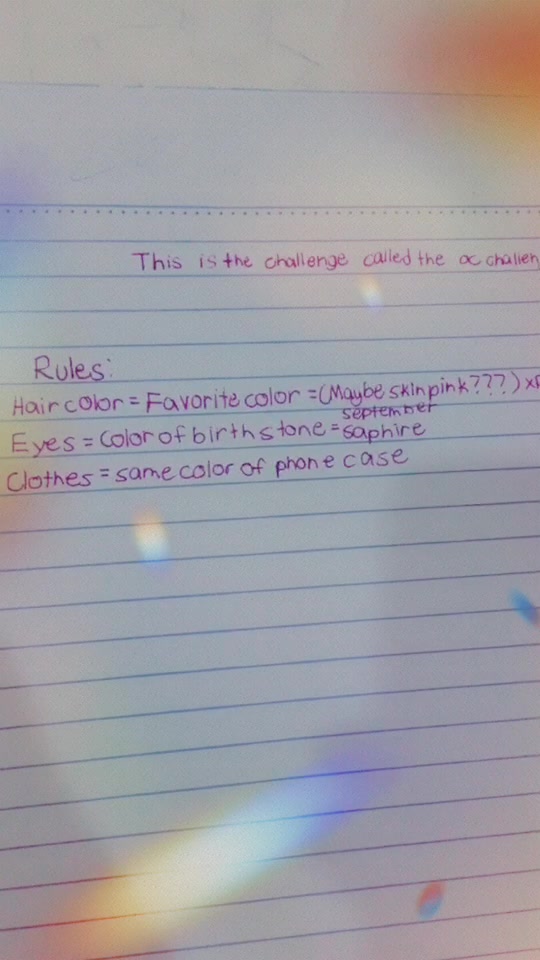 This is the challenge called the oc challen
Rules:
Hair color = Favorite color = (Maybe skin pink???) x
september
Eyes = color of birthstone = saphire
Clothes = same color of phone case